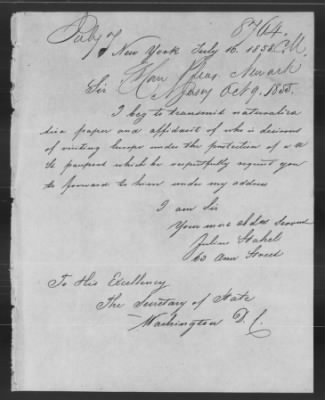 8764.
New York July 16. 1855. C.M.
Newark
Sir N. Jersey Oct 9. 1855.
I beg to transmit naturaliza
tion paper and affidavit of who is desirous
of visiting Europe under the protection of a U
St. passport which he respectfully request you
to forward to him under my address
I am Sir
Your most obdt Servant
Julius Stahel
63 Ann Street
To His Excellency
The Secretary of State
Washington D. C.